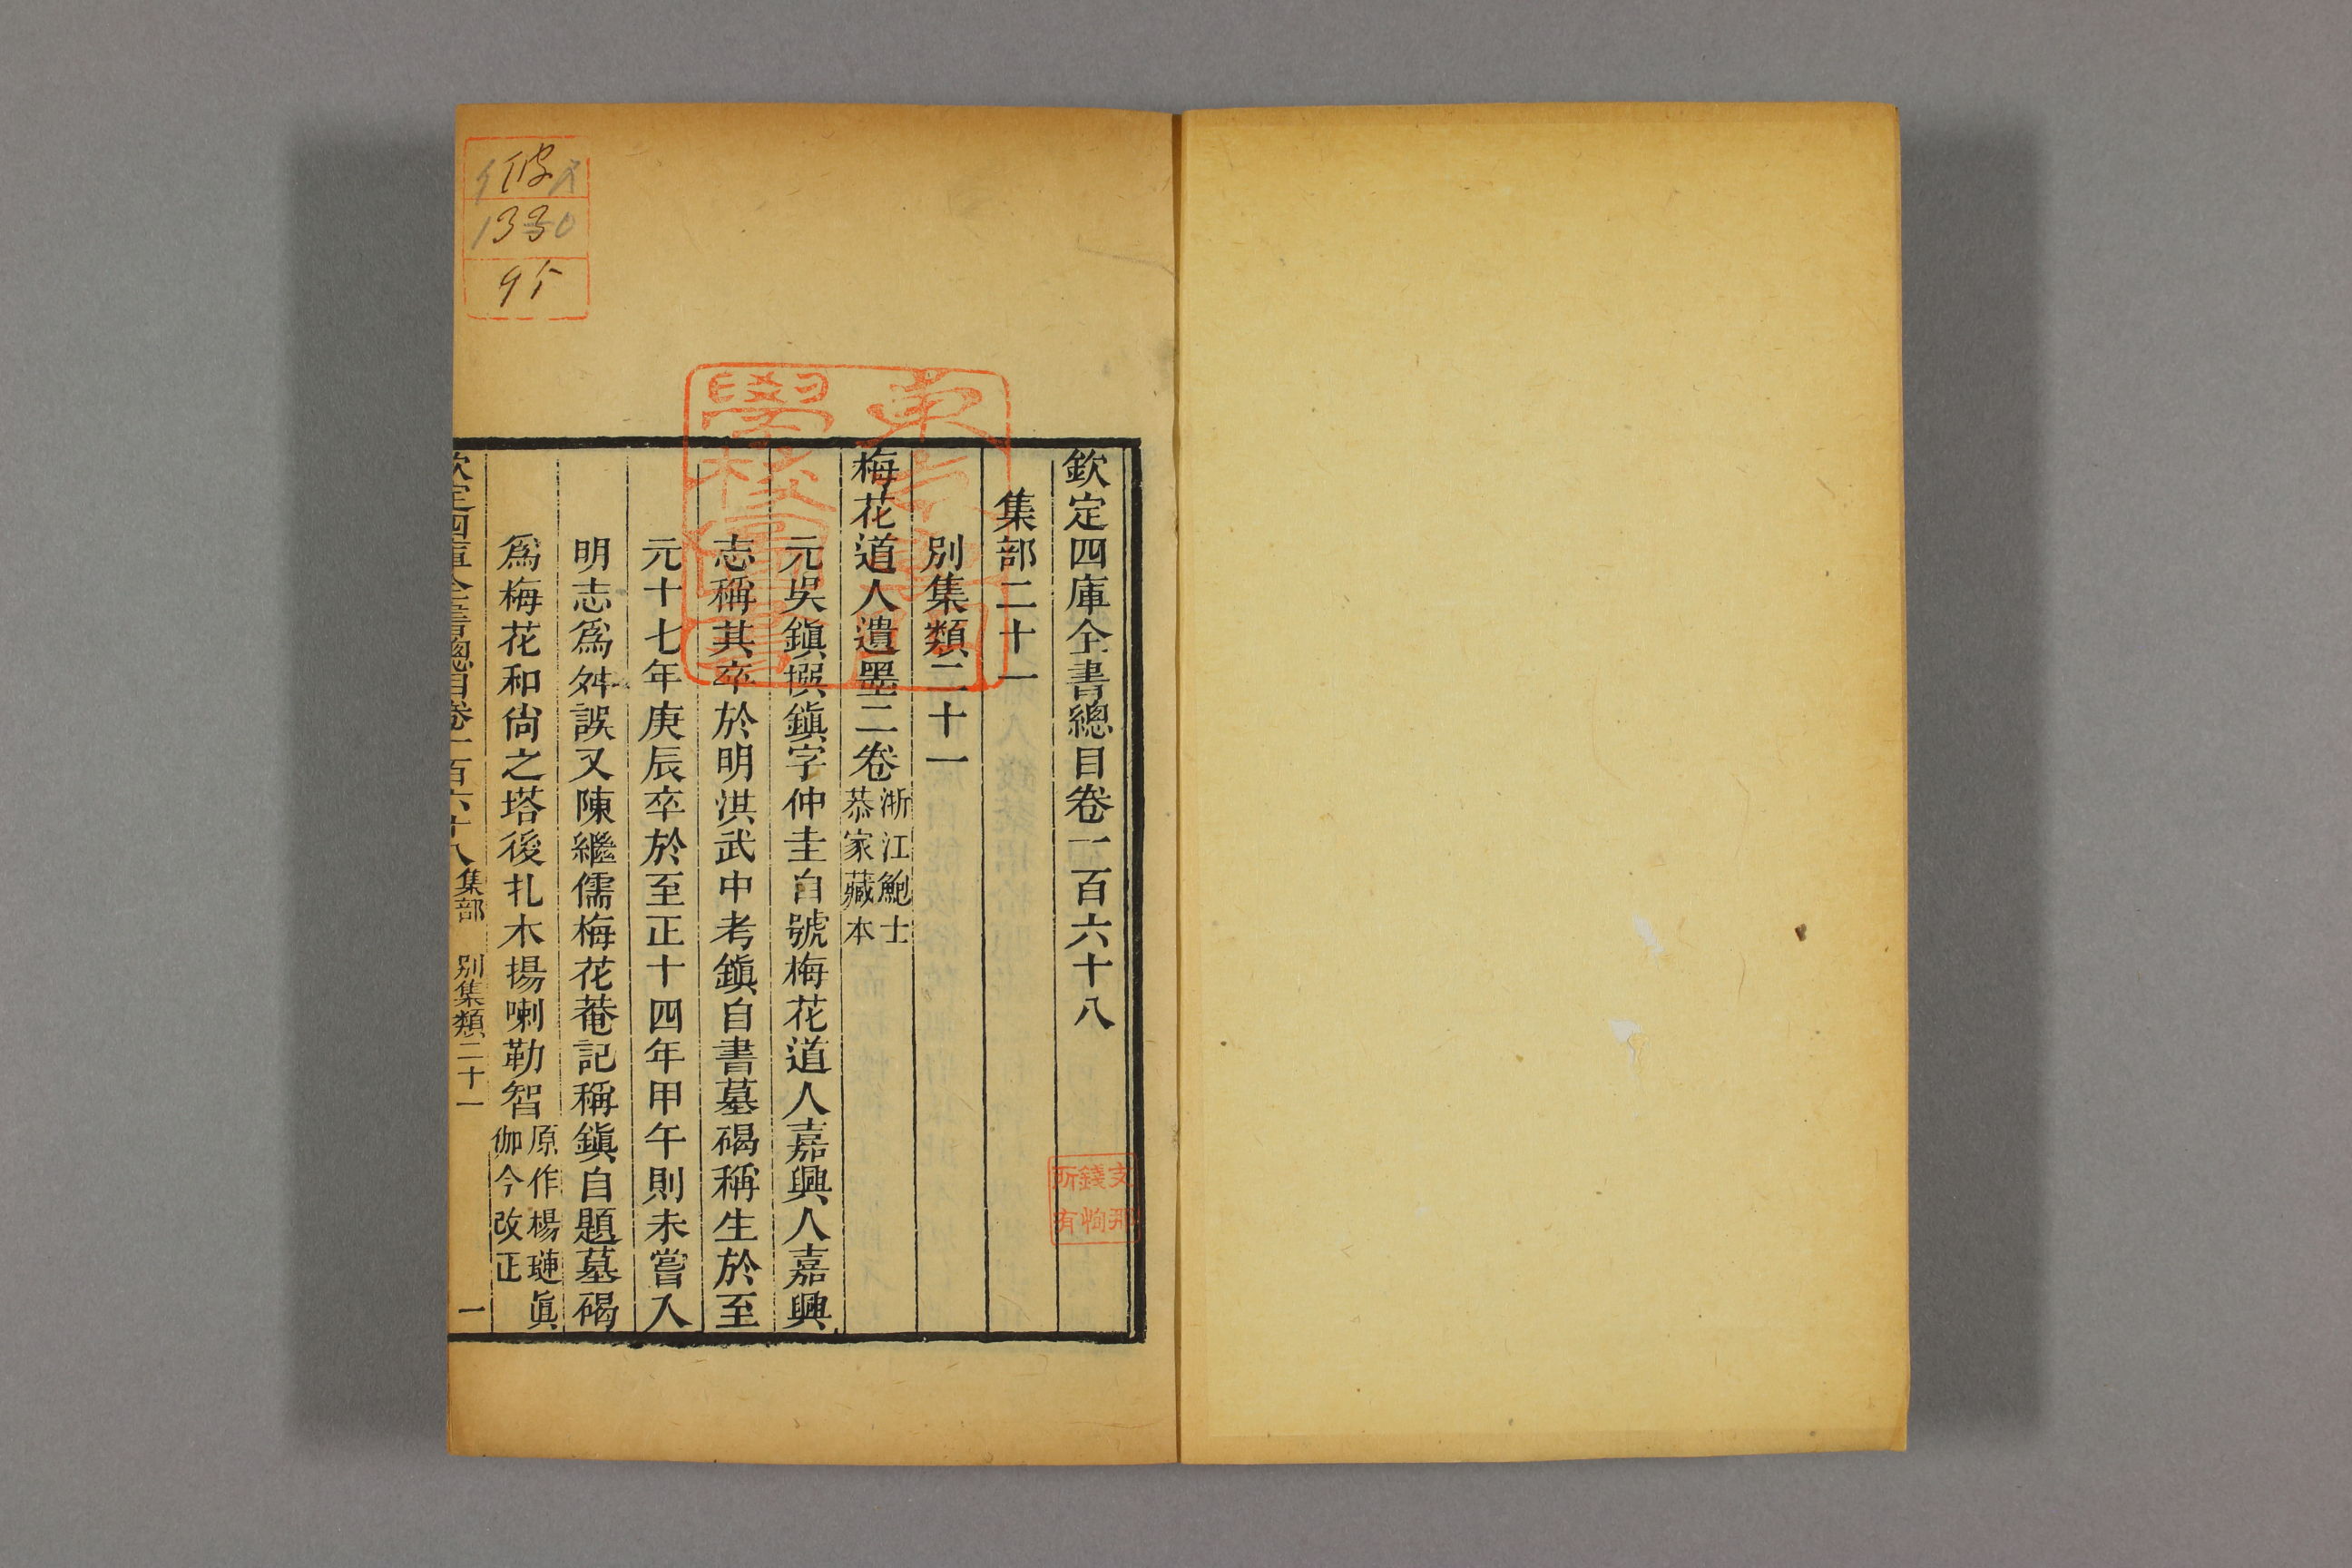 欽定四庫全書總目卷一百六十八
集部二十一
別集類二十一
梅花道人遺墨二卷浙江鮑士恭家藏本
元吳鎭撰鎭字仲圭自號梅花道人嘉興人嘉興
志稱其卒於明洪武中考鎭自書墓碣稱生於至
元十七年庚辰卒於至正十四年甲午則未嘗入
明志爲舛誤又陳繼儒梅花菴記稱鎭自題墓碣
爲梅花和尙之塔後扎木揚喇勒智原作楊璉眞伽今改正
欽定四庫全書總目卷一百六十八 集部 別集類二十一 一
支那
錢恂
所有
133
95